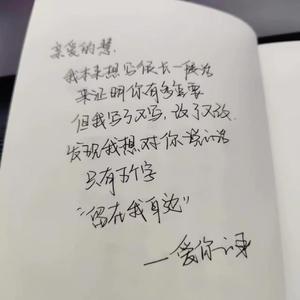 亲爱的慧.
我本来想写很长一段话
来证明你有多重要
但我写了又写,改了又改.
发现我想对你说的话
只有五个字
“留在我身边”
—爱你